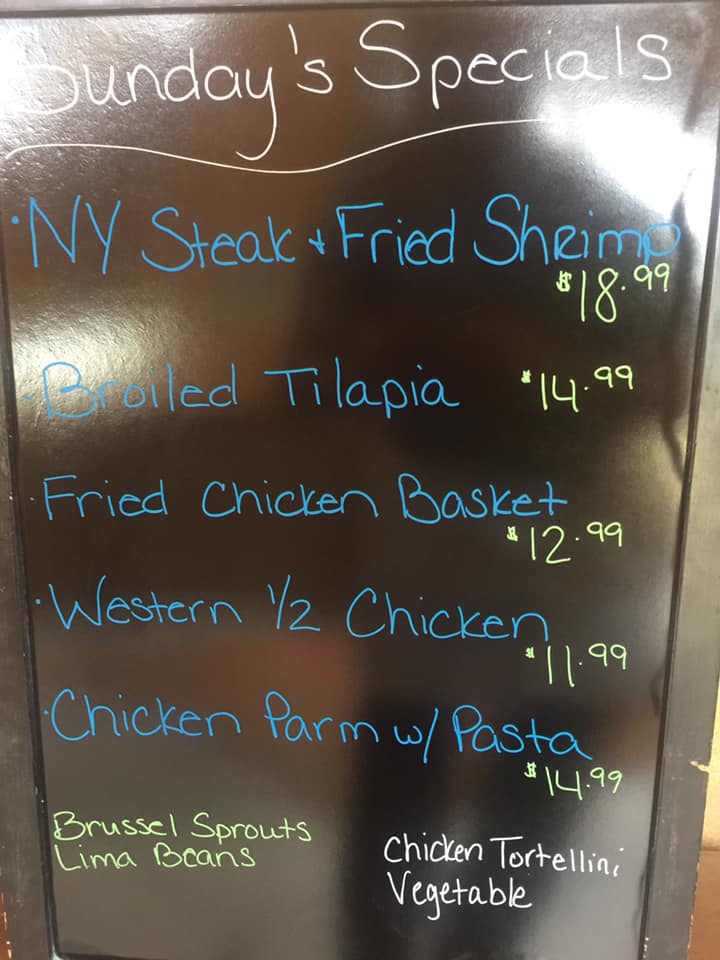 Sunday's Specials
·NY Steak + Fried Shrimp
$18.99
·Broiled Tilapia $14.99
·Fried Chicken Basket
$12.99
·Western 1/2 Chicken
$11.99
·Chicken Parm w/ Pasta
$14.99
Brussel Sprouts
Lima Beans
Chicken Tortellini
Vegetable